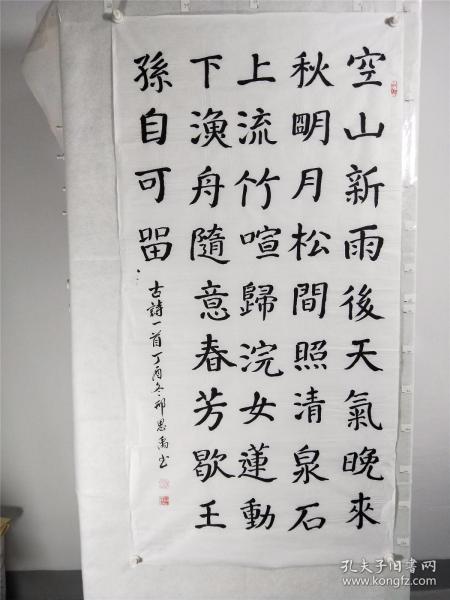 空山新雨後天氣晚來
秋明月松間照清泉石
上流竹喧歸浣女蓮動
下漁舟隨意春芳歇王
孫自可留
古詩一首丁酉冬邢思禹书
孔夫子旧书网
www.kongfz.com